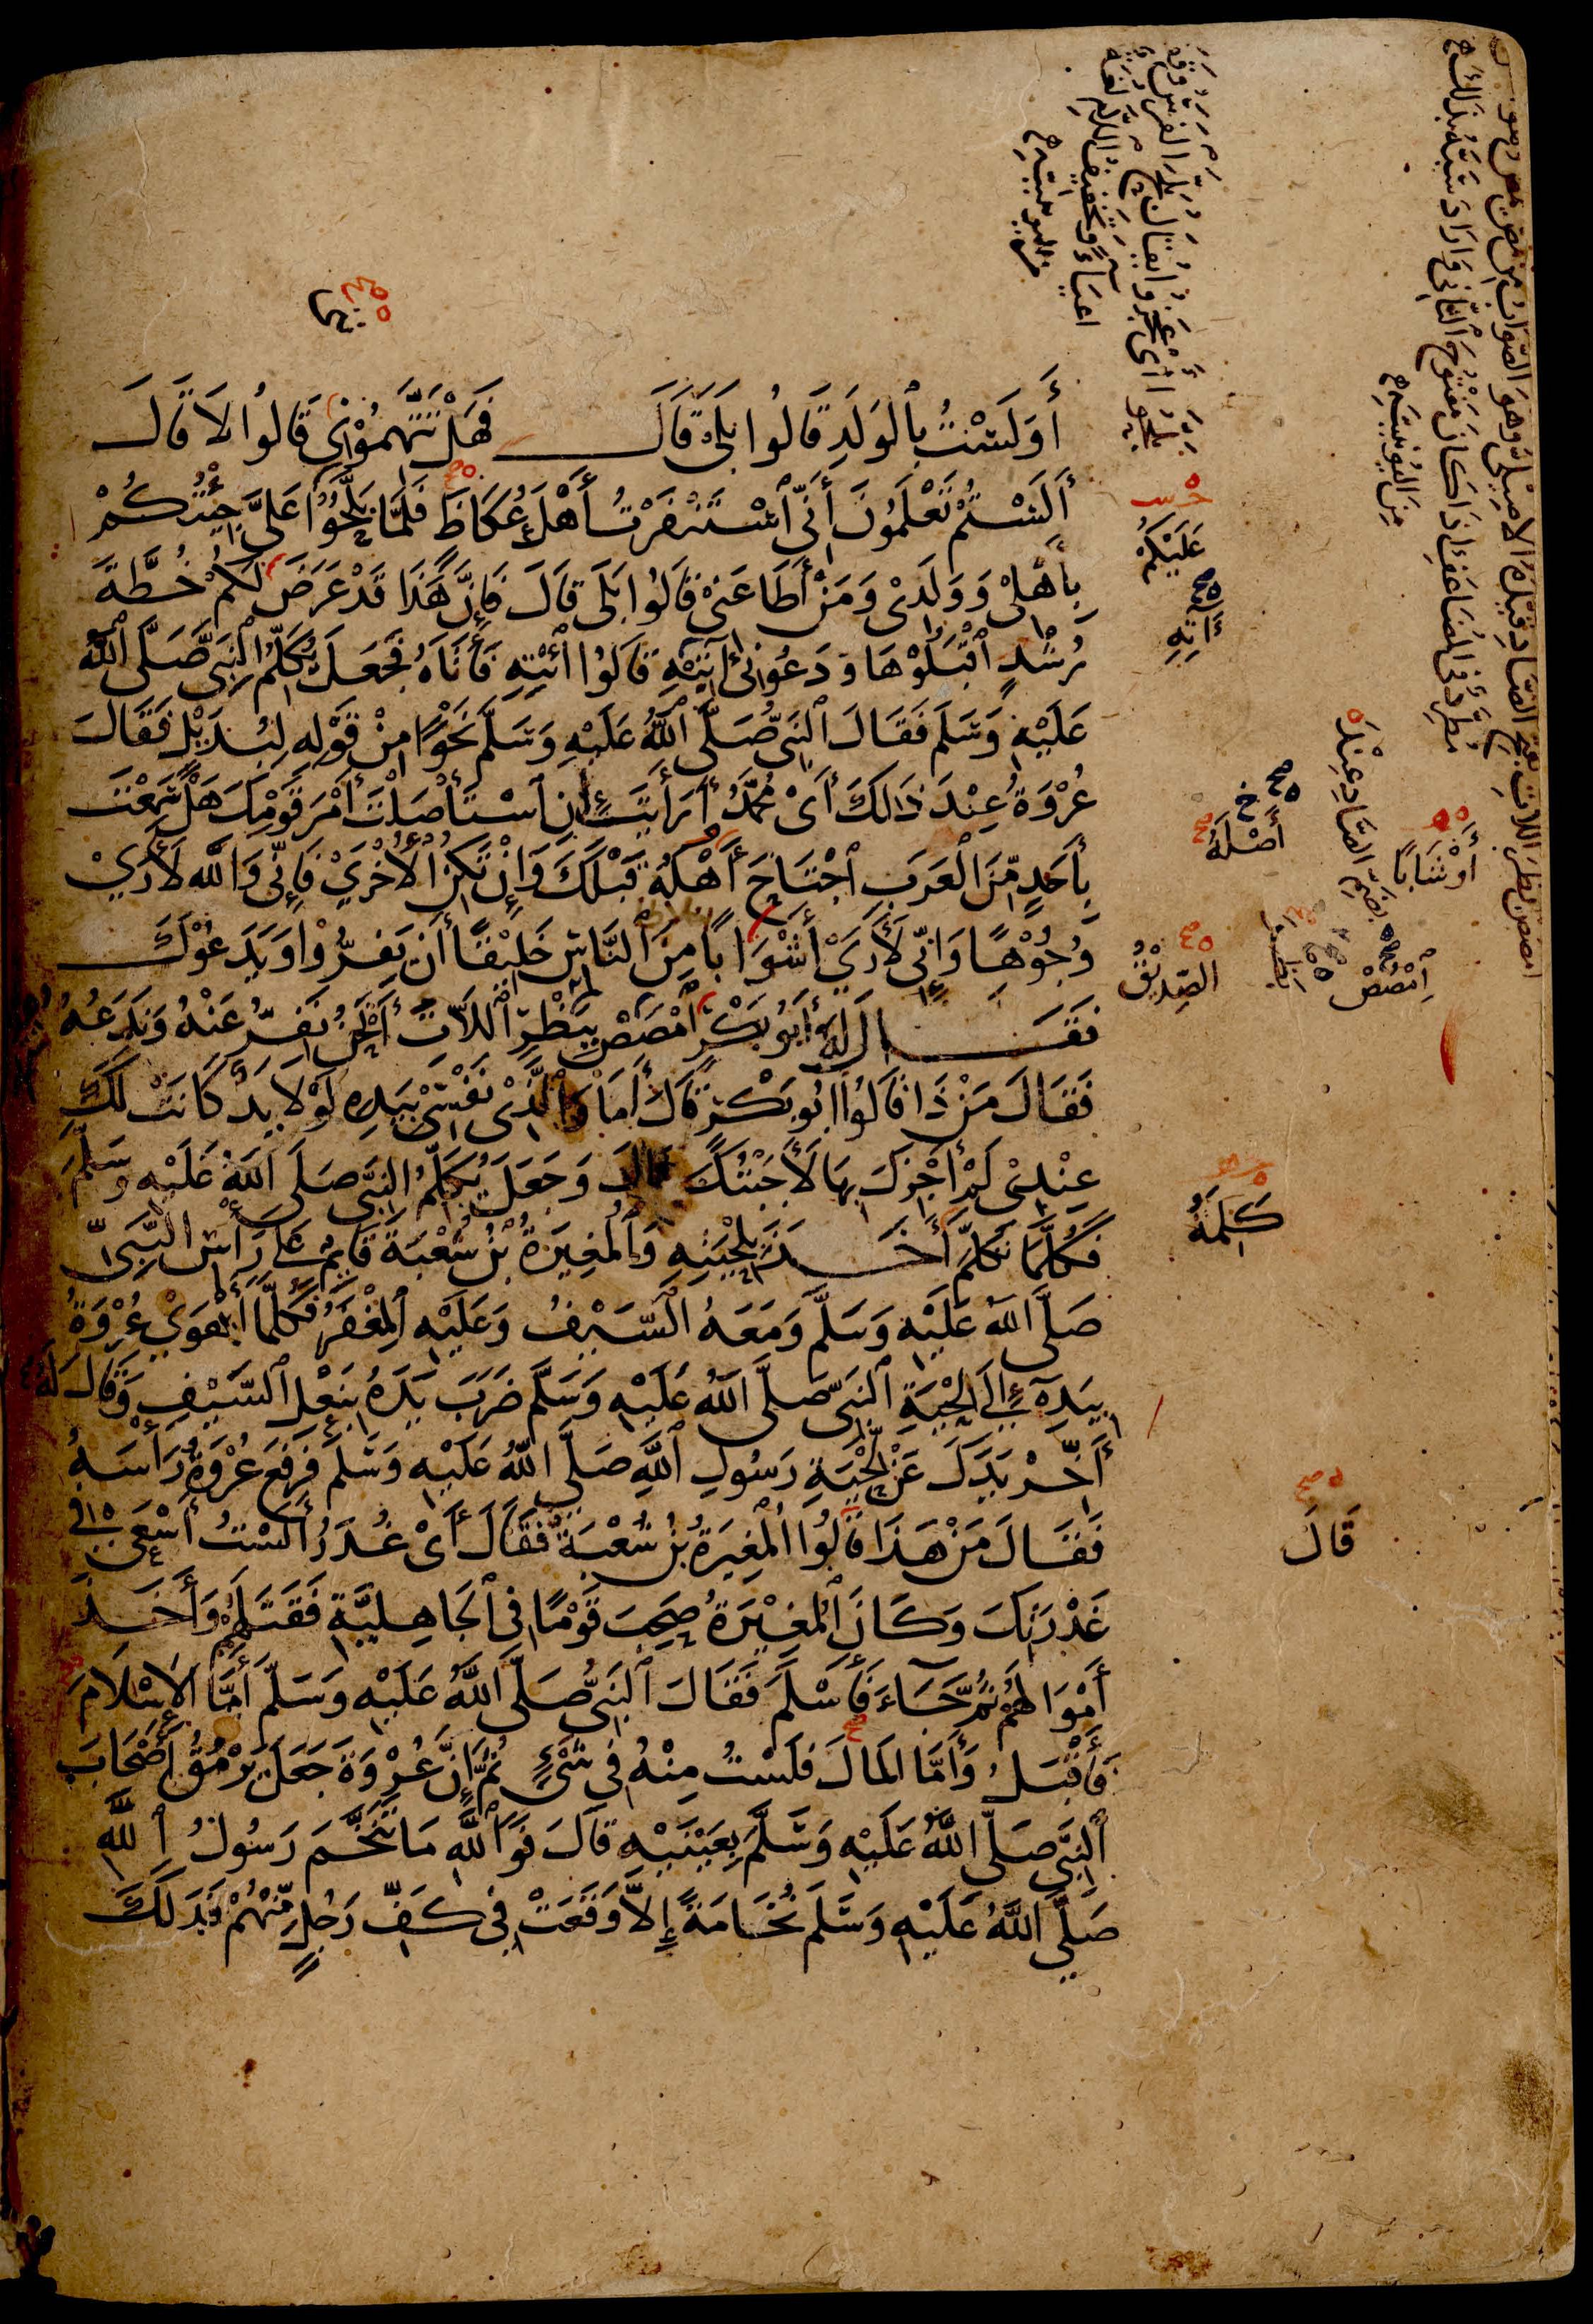 أَوَلَسْتُ بِٱلْوَلَدِ قَالُوا بَلَى قَالَ فَهَلْ تَتَّهِمُوْنِي قَالُوا لَا قَالَ
أَلَسْتُمْ تَعْلَمُونَ أَنِّي ٱسْتَنْفَرْتُ أَهْلَ عُكَاظَ فَلَمَّا بَلَّحُوْا عَلَيَّ جِئْتُكُمْ
بِأَهْلِيْ وَوَلَدِيْ وَمَنْ أَطَاعَنِيْ قَالُوا بَلَى قَالَ فَإِنَّ هَذَا قَدْ عَرَضَ لَكُمْ خُطَّةَ
رُشْدٍ ٱقْبَلُوْهَا وَدَعُوْنِيْ آتِيْهِ قَالُوا ٱئْتِهِ فَأَتَاهُ فَجَعَلَ يُكَلِّمُ ٱلنَّبِيَّ صَلَّى ٱللَّهُ
عَلَيْهِ وَسَلَّمَ فَقَالَ ٱلنَّبِيُّ صَلَّى ٱللَّهُ عَلَيْهِ وَسَلَّمَ نَحْوًا مِنْ قَوْلِهِ لِبُدَيْلٍ فَقَالَ
عُرْوَةُ عِنْدَ ذَالِكَ أَيْ مُحَمَّدُ أَرَأَيْتَ إِنِ ٱسْتَأْصَلْتَ أَمْرَ قَوْمِكَ هَلْ سَمِعْتَ
بِأَحَدٍ مِّنَ الْعَرَبِ ٱجْتَاحَ أَهْلَهُ قَبْلَكَ وَإِنْ تَكُنِ ٱلْأُخْرَىْ فَإِنِّي وَاللهِ لَأَرَىْ
وُجُوْهًا وَإِنِّي لَأَرَىْ أَشْوَابًا مِنَ ٱلنَّاسِ خَلِيْقًا أَن يَفِرُّوْا وَيَدَعُوْكَ
فَقَالَ لَهُ أَبُو بَكْرٍ ٱمْصَصْ بِبَظْرِ ٱللَّاتِ أَنَحْنُ نَفِرُّ عَنْهُ وَنَدَعُهُ
فَقَالَ مَنْ ذَا قَالُوْا أَبُو بَكْرٍ قَالَ أَمَا وَٱلَّذِيْ نَفْسِيْ بِيَدِهِ لَوْلَا يَدٌ كَانَتْ لَكَ
عِنْدِيْ لَمْ أَجْزِكَ بِهَا لَأَجَبْتُكَ قَالَ وَجَعَلَ يُكَلِّمُ النَّبِيَّ صَلَّى اللَّهُ عَلَيْهِ وَسَلَّمَ
فَكُلَّمَا تَكَلَّمَ أَخَذَ بِلِحْيَتِهِ وَٱلْمُغِيرَةُ بْنُ شُعْبَةَ قَائِمٌ عَلَى رَأْسِ النَّبِيِّ
صَلَّى اللهُ عَلَيْهِ وَسَلَّمَ وَمَعَهُ ٱلسَّيْفُ وَعَلَيْهِ ٱلْمِغْفَرُ فَكُلَّمَا أَهْوَىْ عُرْوَةُ
بِيَدِهِ إِلَى لِحْيَةِ ٱلنَّبِيِّ صَلَّى اللهُ عَلَيْهِ وَسَلَّمَ ضَرَبَ يَدَهُ بِنَعْلِ ٱلسَّيْفِ وَقَالَ لَهُ
أَخِّرْ يَدَكَ عَنْ لِحْيَةِ رَسُولِ ٱللَّهِ صَلَّى اللهُ عَلَيْهِ وَسَلَّمَ فَرَفَعَ عُرْوَةُ رَأْسَهُ
فَقَالَ مَنْ هَذَا قَالُوا الْمُغِيرَةُ بْنُ شُعْبَةَ فَقَالَ أَيْ غُدَرُ أَلَسْتُ أَسْعَى فِي
غَدْرَتِكَ وَكَانَ ٱلْمُغِيْرَةُ صَحِبَ قَوْمًا فِي ٱلْجَاهِلِيَّةِ فَقَتَلَهُمْ وَأَخَذَ
أَمْوَالَهُمْ ثُمَّ جَاءَ فَأَسْلَمَ فَقَالَ ٱلنَّبِيُّ صَلَّى اللَّهُ عَلَيْهِ وَسَلَّمَ أَمَّا ٱلْإِسْلَامَ
فَأَقْبَلُ وَأَمَّا الْمَالَ فَلَسْتُ مِنْهُ فِي شَيْءٍ ثُمَّ إِنَّ عُرْوَةَ جَعَلَ يَرْمُقُ أَصْحَابَ
ٱلنَّبِيِّ صَلَّى اللَّهُ عَلَيْهِ وَسَلَّمَ بِعَيْنَيْهِ قَالَ فَوَٱللَّهِ مَا تَنَخَّمَ رَسُولُ ٱللَّهِ
صَلَّى اللَّهُ عَلَيْهِ وَسَلَّمَ نُخَامَةً إِلَّا وَقَعَتْ فِي كَفِّ رَجُلٍ مِّنْهُمْ فَدَلَكَ
عَلَيْكُمْ
آتِهِ
أَصْلَهُ
أَوْشَابًا
ٱمْصُصْ
الصِّدِّيْقُ
كَلِمَةً
قَالَ
مِنَ الْيُونِيْنِيَّةِ